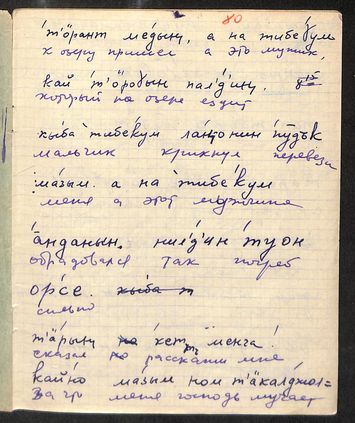 80
т'ӧрант медыңу, а на тибе́кум
к озеру пришел а это мужик,
кай т'ӧрөғын палд'ину,
который на озере ездит
кыба тибекум лаңонин
мальчик крикнул перевези
мазым. а на тибе́кум
меня а этот мужчина
а́нданын. нилд'ин туон
обрадовался так погреб
орсе. кыба т
сильно
т'а́рыңу на кет менга!
сказал но расскажи мне
кайко мазым ном
за что меня господь мучает